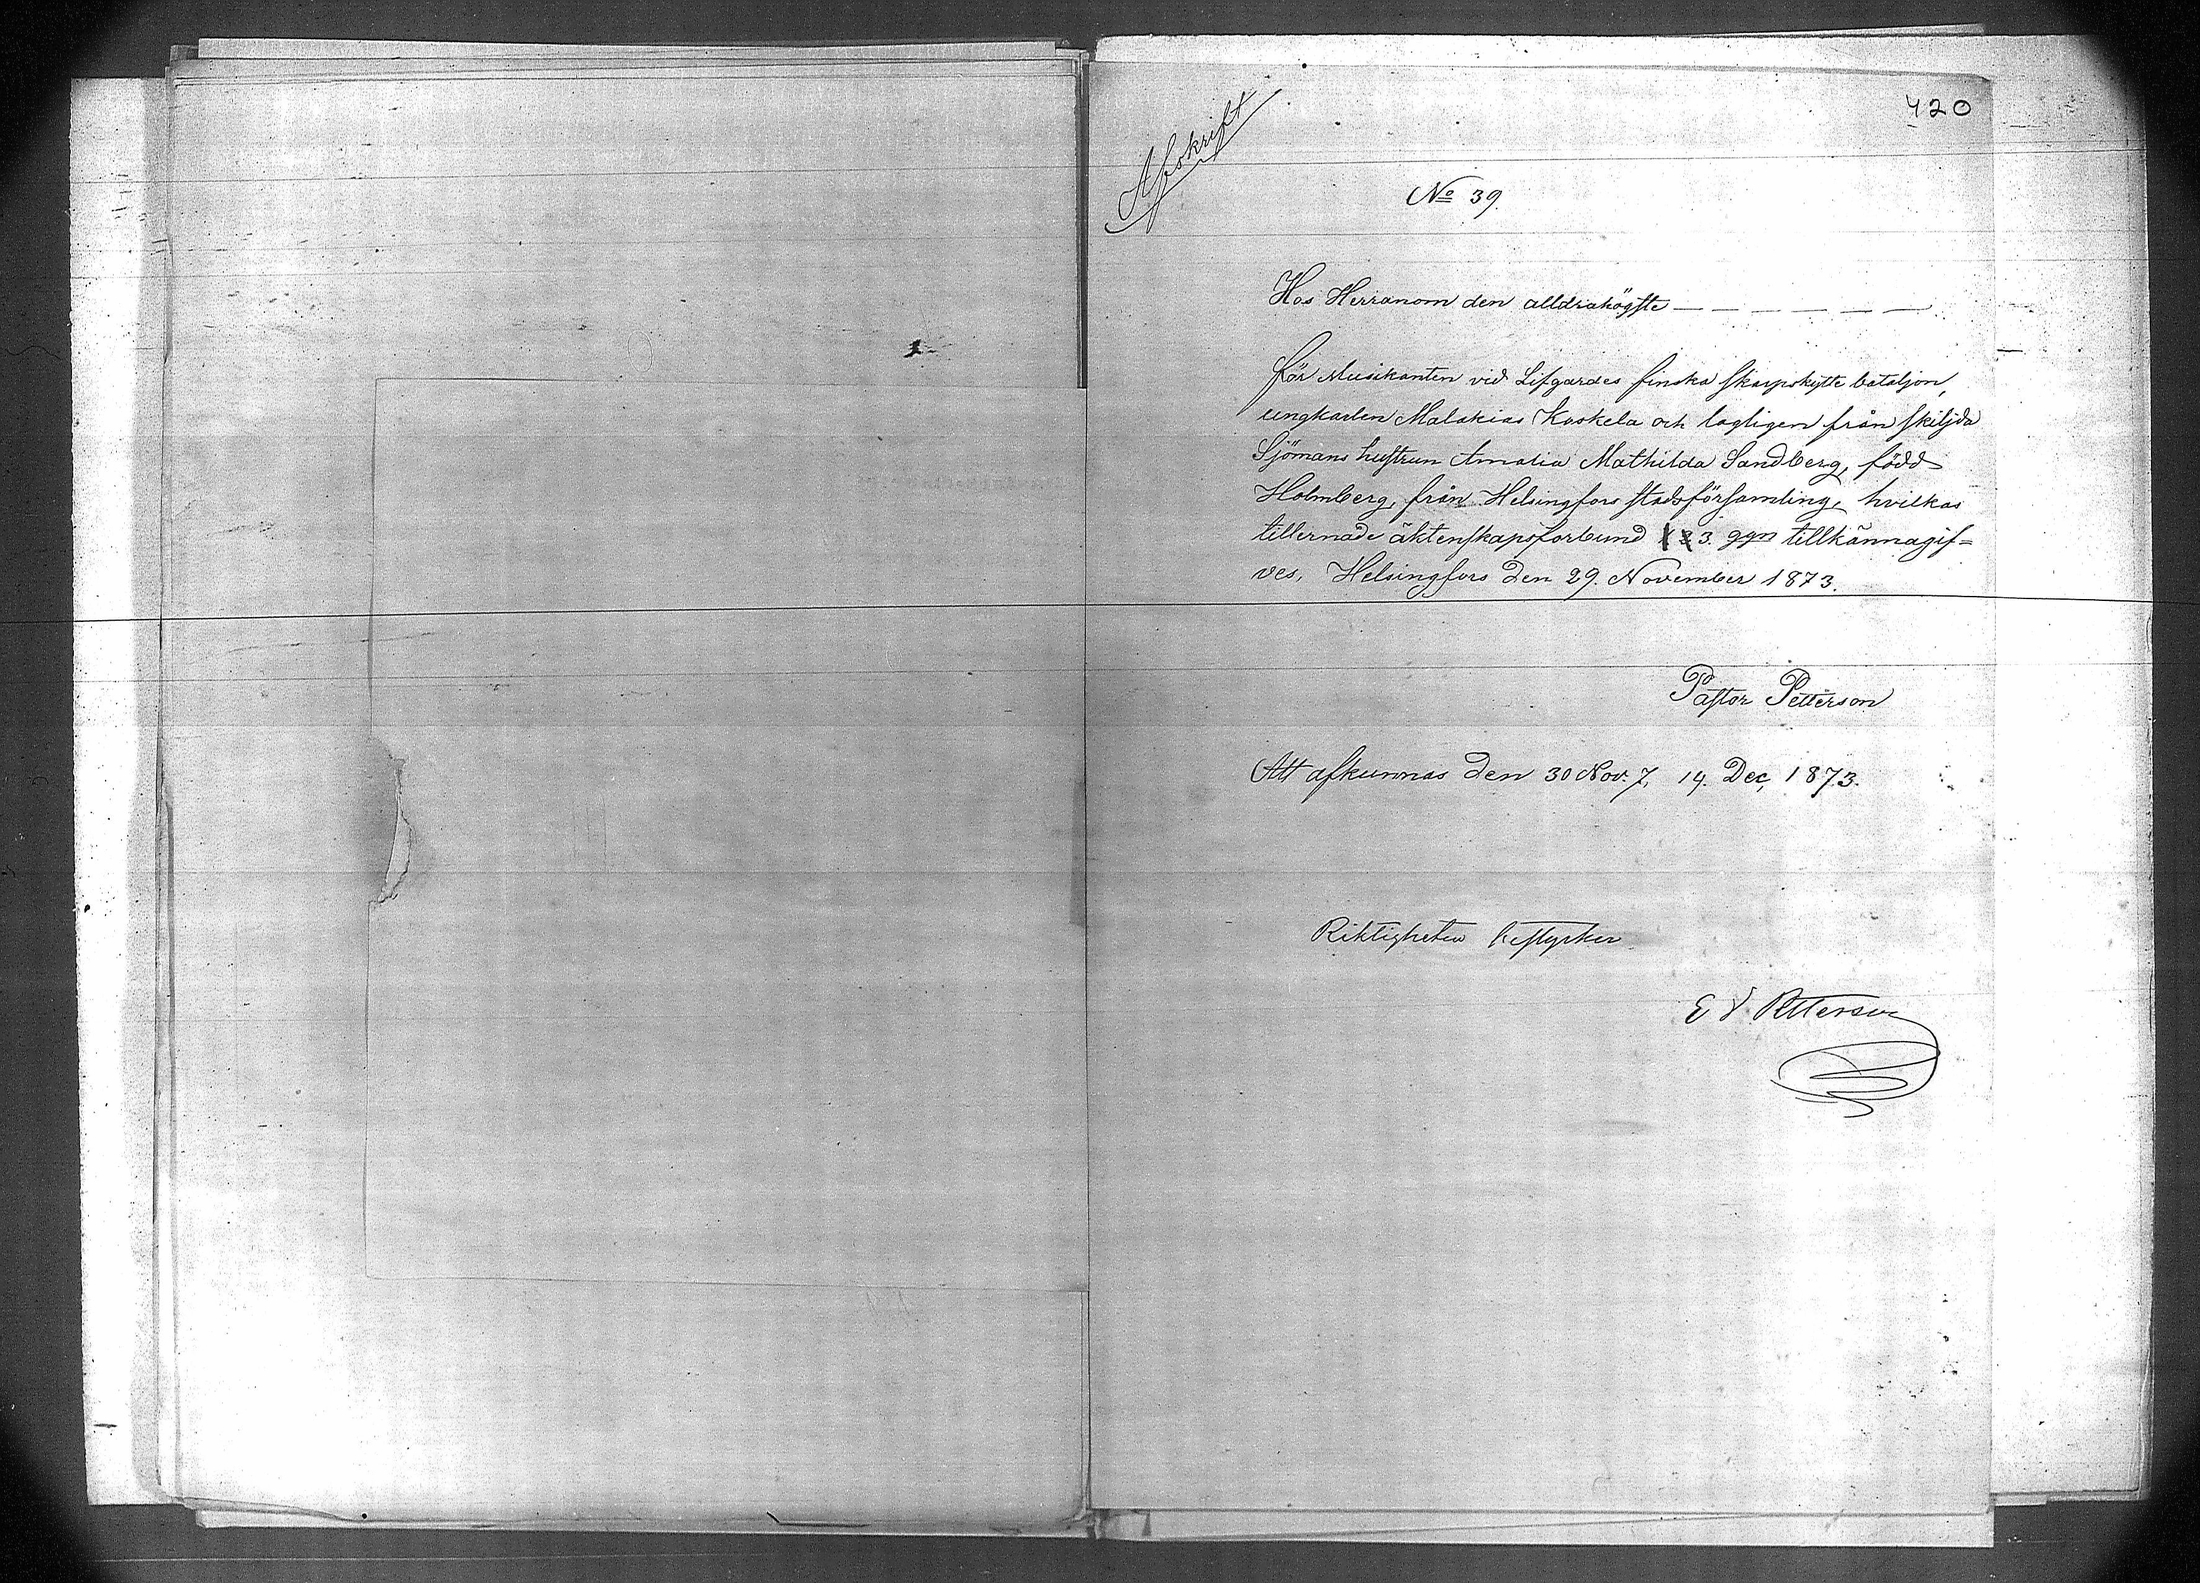 420
Afskrift
No 39.
Hos Herranom den alldrahögste — — — — — —
för Musikanten vid Lifgardes finska skarpskytte bataljon,
ungkarlen Malakias Koskela och lagligen från skiljda
Sjömans hustrun Amalia Mathilda Sandberg, född
Holmberg, från Helsingfors stadsförsamling, hvilkas
tillernade äktenskapsförbund 1 2 3. ggn tillkännagif=
ves. Helsingfors den 29. November 1873.
Pastor Petterson
Att afkunnas den 30 Nov. 7, 14. Dec, 1873.
Riktigheten bestyrker
E V. Petterson